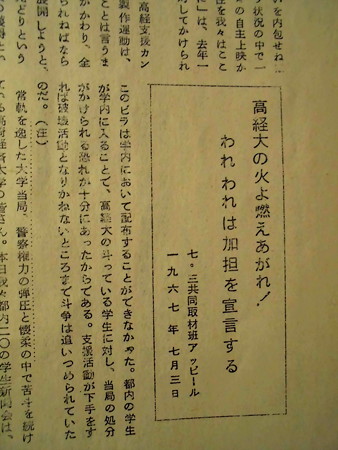 いを内包せね
状況の中で一
の自主上映か
に」は、去年一
対してかけられ
高経支援カン
製作運動は、
ことは言うま
かかわり、全
られねばなら
展開しようと、
高経大の火よ燃えあがれ！
われわれは加担を宣言する
七・三共同取材班アッピール
一九六七年七月三日
このビラは学内において配布することができなかった。都内の学生
が学内に入ることで、高経大の斗っている学生に対し、当局の処分
がかけられる恐れが十分にあったからである。支援活動が下手をす
れば破壊活動となりかねないところまで斗争は追いつめられていた
のだ。（注）
常軌を逸した大学当局、警察権力の弾圧と懐柔の中で苦斗を続け
ている高崎経済大学の皆さん。本日我々都内二〇の学生新聞会は、